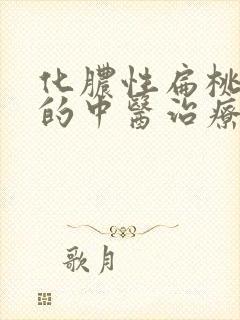 化膿性扁桃
的中醫治療
歌月